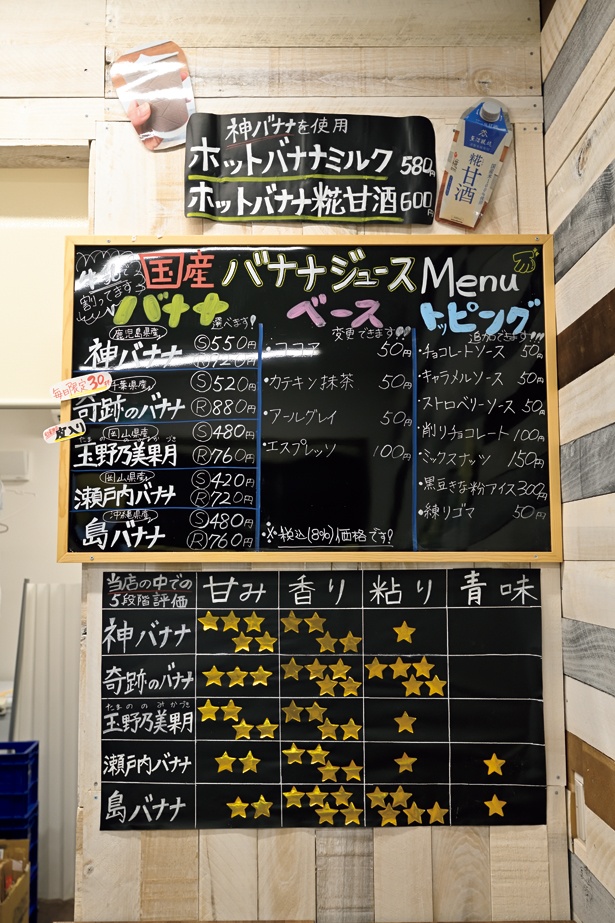 神バナナを使用
ホットバナナミルク 580円
ホットバナナ糀甘酒 600円
糀
甘酒
牛乳で
割ってます
国産バナナジュース Menu
バナナ
選べます!
鹿児島県産
神バナナ Ⓢ550円
毎日限定30杯
千葉県産
奇跡のバナナ Ⓢ520円
Ⓡ880円
皮入り
岡山県産
たまののみかづき
玉野乃美果月 Ⓢ480円
Ⓡ760円
岡山県産
瀬戸内バナナ Ⓢ420円
Ⓡ720円
沖縄県産
島バナナ Ⓢ480円
Ⓡ760円
ベース
変更できます!!
・ココア 50円
・カテキン抹茶 50円
・アールグレイ 50円
・エスプレッソ 100円
※税込(8%)価格です!
トッピング
追加できます!
・チョコレートソース 50円
・キャラメルソース 50円
・ストロベリーソース 50円
・削りチョコレート 100円
・ミックスナッツ 150円
・黒豆きな粉アイス 300円
・練りゴマ 50円
当店の中での
5段階評価
甘み 香り 粘り 青味
神バナナ ★★★★ ★★★★ ★
奇跡のバナナ ★★★ ★★★★★ ★★★★★
たまののみかづき
玉野乃美果月 ★★★★ ★★★★ ★
瀬戸内バナナ ★★ ★★★★★ ★ ★
島バナナ ★★ ★★★★★ ★★★★★ ★